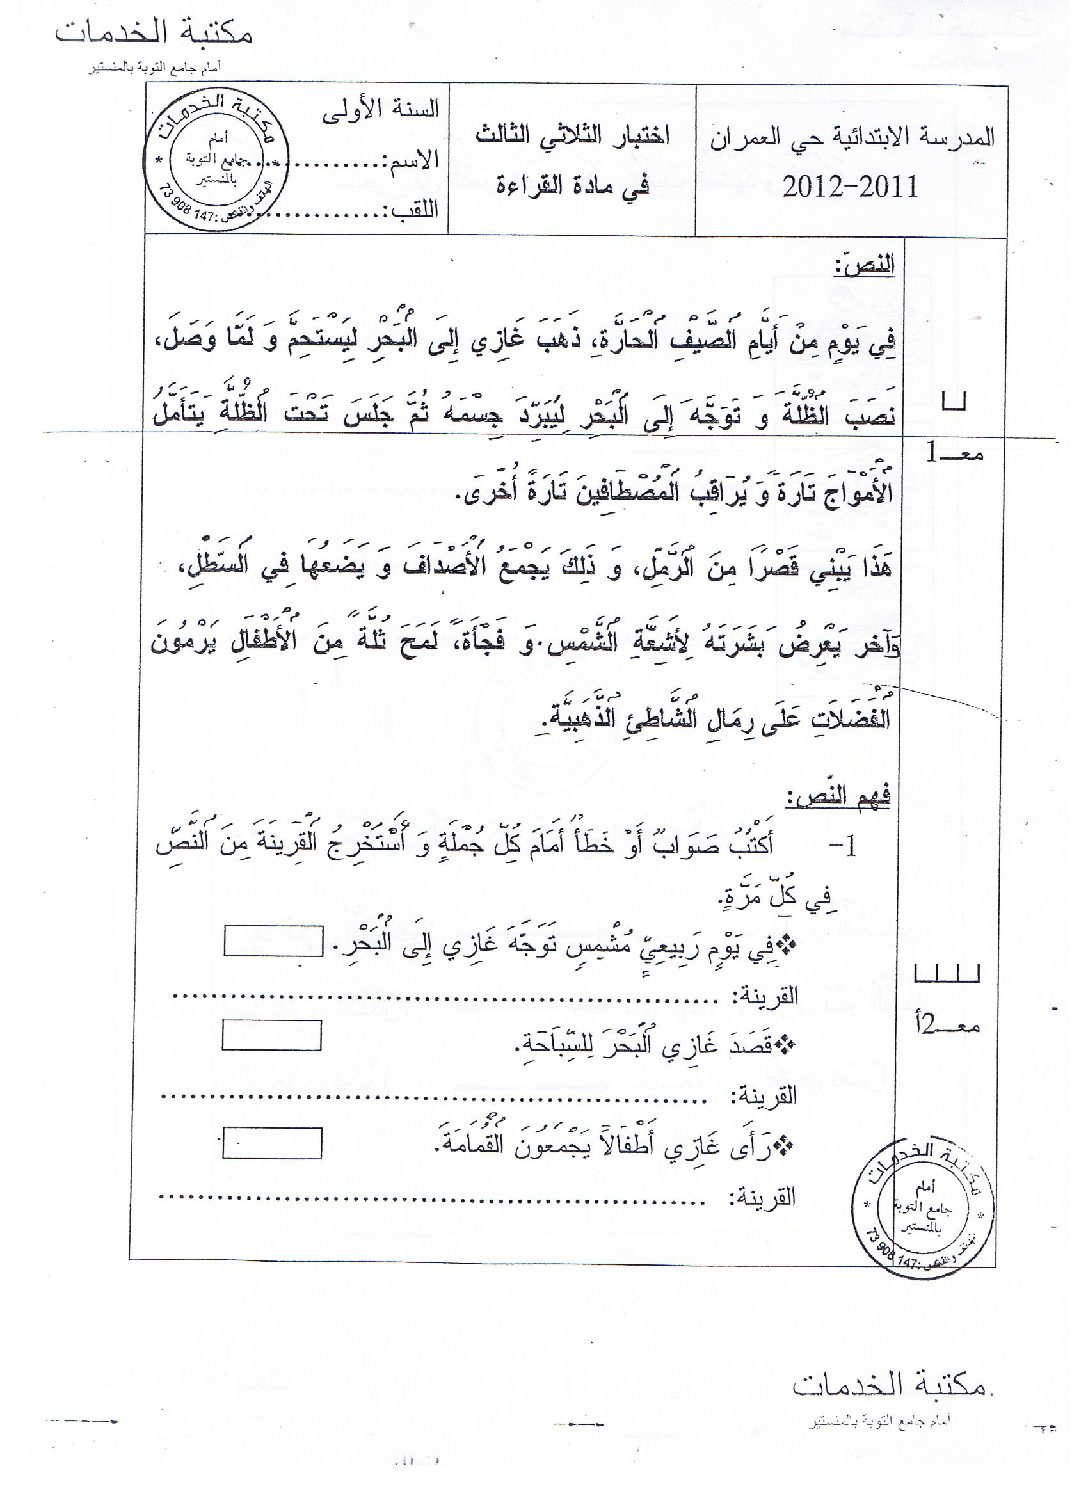 مكتبة الخدمات
أمام جامع التوبة بالمنستير
المدرسة الابتدائية حي العمران
2012-2011
اختبار الثلاثي الثالث
في مادة القراءة
السنة الأولى
الاسم:..................
اللقب:..................
مكتبة الخدمات
أمام
جامع التوبة
بالمنستير
الهاتف والفاكس: 147 908 73
النصّ:
فِي يَوْمٍ مِنْ أَيَّامِ الصَّيْفِ الْحَارَّةِ، ذَهَبَ غَازِي إِلَى الْبَحْرِ لِيَسْتَحِمَّ وَ لَمَّا وَصَلَ،
نَصَبَ الْظُلَّةَ وَ تَوَجَّهَ إِلَى الْبَحْرِ لِيُبَرِّدَ جِسْمَهُ ثُمَّ جَلَسَ تَحْتَ الْظُلَّةِ يَتَأَمَّلُ
الْأَمْوَاجَ تَارَةً وَ يُرَاقِبُ الْمُصْطَافِينَ تَارَةً أُخْرَى.
هَذَا يَبْنِي قَصْرًا مِنَ الْرَّمْلِ، وَ ذَلِكَ يَجْمَعُ الْأَصْدَافَ وَ يَضَعُهَا فِي الْسَّطْلِ،
وَآخر يَعْرِضُ بَشَرَتَهُ لِأَشِعَّةِ الْشَّمْسِ. وَ فَجْأَةً، لَمَحَ ثُلَّةً مِنَ الْأَطْفَالِ يَرْمُونَ
الْفَضَلَاتِ عَلَى رِمَالِ الْشَّاطِئِ الْذَّهَبِيَّةِ.
معـ1
فهم النّص:
1- أَكْتُبُ صَوَابٌ أَوْ خَطَأٌ أَمَامَ كُلِّ جُمْلَةٍ وَ أَسْتَخْرِجُ الْقَرِينَةَ مِنَ الْنَّصِّ
فِي كُلِّ مَرَّةٍ.
❖فِي يَوْمٍ رَبِيعِيٍّ مُشْمِسٍ تَوَجَّهَ غَازِي إِلَى الْبَحْرِ.
القرينة: ......................................................
معـ2أ
❖قَصَدَ غَازِي الْبَحْرَ لِلسِّبَاحَةِ.
القرينة: ......................................................
❖رَأَى غَازِي أَطْفَالاً يَجْمَعُونَ الْقُمَامَةَ.
القرينة: ......................................................
مكتبة الخدمات
أمام
جامع التوبة
بالمنستير
الهاتف والفاكس: 147 908 73
مكتبة الخدمات.
أمام جامع التوبة بالمنستير